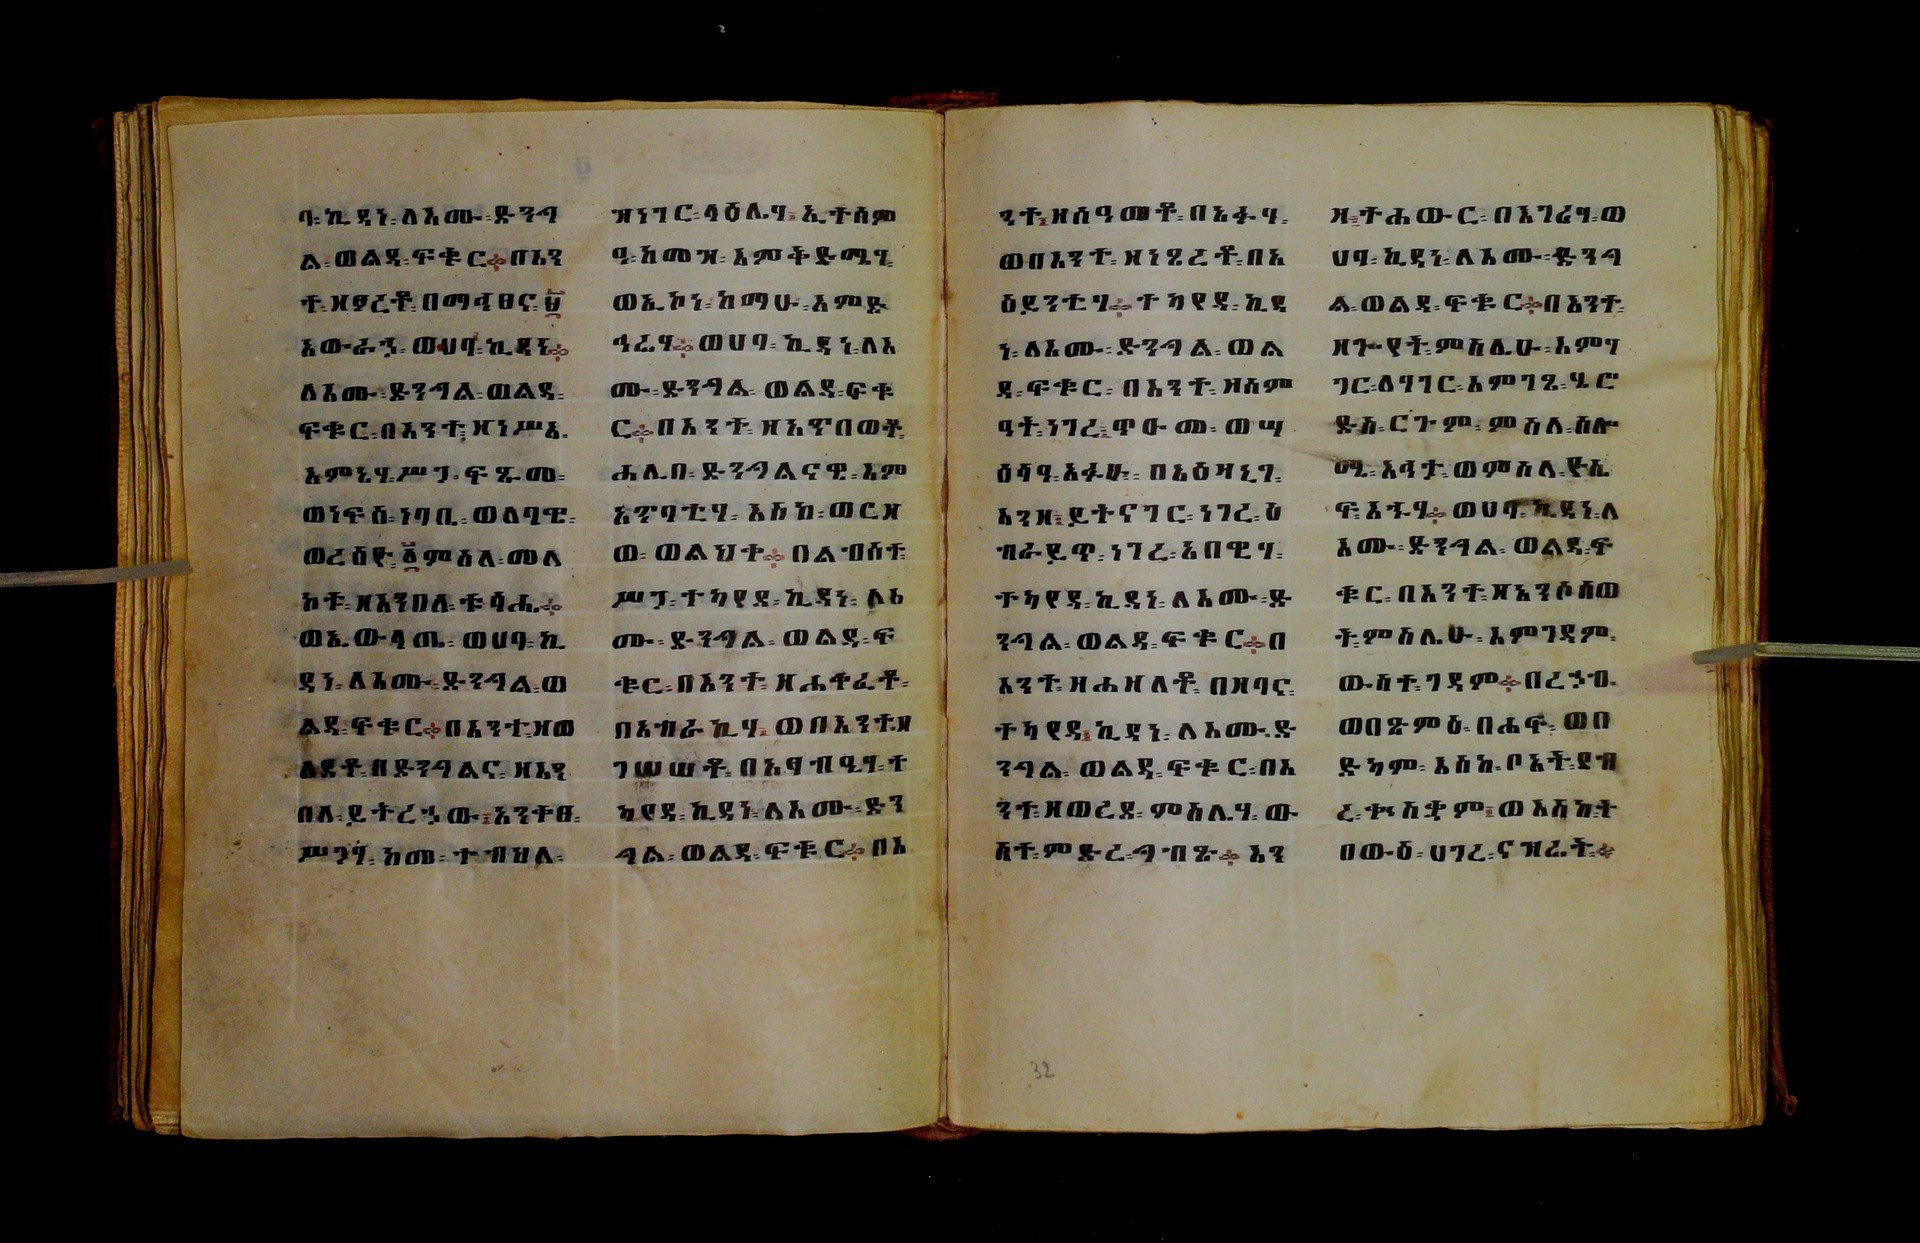 ባ፡ ኪዳነ፡ ለእሙ፡ ድንግ
ል፡ ወልዳ፡ ፍቁር፨ በእን
ት፡ ዘፆረቶ፡ በማኅፀና፡ ፱
አውራኅ፡ ወሀባ፡ ኪዳነ፨
ለእሙ፡ ድንግል፡ ወልዳ፡
ፍቁር፡ በእንተ፡ ዘነሥአ፡
እምኔሃ፡ ሥጋ፡ ፍጹመ፡
ወነፍሰ፡ ነባቢ፡ ወለባዊ፡
ወረሰየ፡ ፩ ምስለ፡ መለ
ኮቱ፡ ዘእንበለ፡ ቱሳሔ፨
ወኢውላጤ፡ ወሀባ፡ ኪ
ዳነ፡ ለእሙ፡ ድንግል፡ ወ
ልዳ፡ ፍቁር፨ በእንተ፡ ዘወ
ለደቶ፡ በድንግልና፡ ዘእን
በለ፡ ይትረኃው፡ አንቀፀ፡
ሥጋሃ፡ ከመ፡ ተብህለ፡
ዝነገር፡ ላዕሌሃ፡ ኢተሰም
ዓ፡ ከመዝ፡ እምቅድሜሃ፡
ወኢኮነ፡ ከማሁ፡ እምድ
ኅሬሃ፨ ወሀባ፡ ኪዳነ፡ ለእ
ሙ፡ ድንግል፡ ወልዳ፡ ፍቁ
ር፨ በእንተ፡ ዘአጥበወቶ፡
ሐሊበ፡ ድንግልናዊ፡ እም
አጥባቲሃ፡ እስከ፡ ወርዘ
ወ፡ ወልህቀ፨ በልብሰተ፡
ሥጋ፡ ተካየደ፡ ኪዳነ፡ ለእ
ሙ፡ ድንግል፡ ወልዳ፡ ፍ
ቁር፡ በእንተ፡ ዘሐቀፈቶ፡
በአብራኪሃ፡ ወበእንተ፡ ዘ
ገሠሠቶ፡ በአፃብዒሃ፡ ተ
ካየዳ፡ ኪዳነ፡ ለእሙ፡ ድን
ግል፡ ወልዳ፡ ፍቁር፨ በእ
ንተ፡ ዘሰዓመቶ፡ በአፉሃ፡
ወበእንተ፡ ዘነጸረቶ፡ በአ
ዕይንቲሃ፨ ተካየዳ፡ ኪዳ
ነ፡ ለእሙ፡ ድንግል፡ ወል
ዳ፡ ፍቁር፡ በእንተ፡ ዘሰም
ዓት፡ ነገረ፡ ጥዑመ፡ ወሣ
ዕሳዓ፡ አፉሁ፡ በእዕዛኒሃ፡
እንዘ፡ ይትናገር፡ ነገረ፡ ዕ
ብራይጥ፡ ነገረ፡ አበዊሃ፡
ተካየዳ፡ ኪዳነ፡ ለእሙ፡ ድ
ንግል፡ ወልዳ፡ ፍቁር፨ በ
እንተ፡ ዘሐዘለቶ፡ በዘባና፡
ተካየዳ፡ ኪዳነ፡ ለእሙ፡ ድ
ንግል፡ ወልዳ፡ ፍቁር፡ በእ
ንተ፡ ዘወረደ፡ ምስሌሃ፡ ው
ስተ፡ ምድረ፡ ግብጽ፨ እን
ዘ፡ ተሐውር፡ በእገሪሃ፡ ወ
ሀባ፡ ኪዳነ፡ ለእሙ፡ ድንግ
ል፡ ወልዳ፡ ፍቁር፨ በእንተ፡
ዘጐየት፡ ምስሌሁ፡ እምሃ
ገር፡ ለሃገር፡ እምገጸ፡ ሄሮ
ድስ፡ ርጉም፡ ምስለ፡ ሰሎ
ሜ፡ እኅታ፡ ወምስለ፡ ዮሴ
ፍ፡ እኁሃ፨ ወሀባ፡ ኪዳነ፡ ለ
እሙ፡ ድንግል፡ ወልዳ፡ ፍ
ቁር፡ በእንተ፡ ዘአንሶሰወ
ት፡ ምስሌሁ፡ እምገዳም፡
ውስተ፡ ገዳም፨ በረኃብ፡
ወበጽምዕ፡ በሐፍ፡ ወበ
ድካም፡ እስከ፡ ቦአት፡ ደብ
ረ፡ ቍስቋም፡ ወእስከት
በውዕ፡ ሀገረ፡ ናዝሬት፨
32